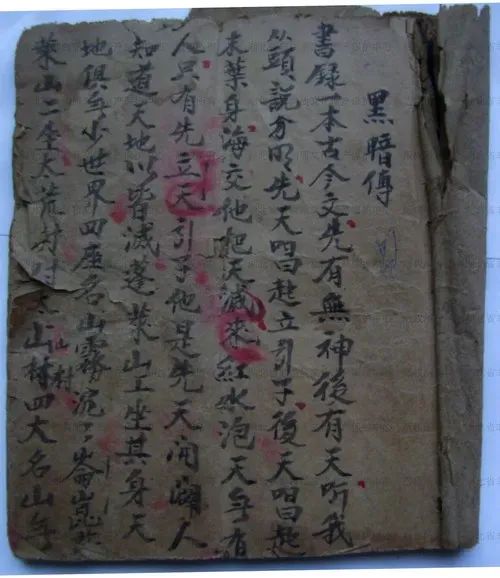 黑暗傳
書錄一本古今文先有無神後有天听我
頭說分明先天唱起立引子後天唱起
末葉身海交他把天滅來紅水泡天無有
人只有先立天引子他是先天開闢人
知道天地以皆滅蓬萊山上坐其身天
地俱無少世界四座名山霧泥崙崑
萊山二座太荒村山村四大名山無
仙村